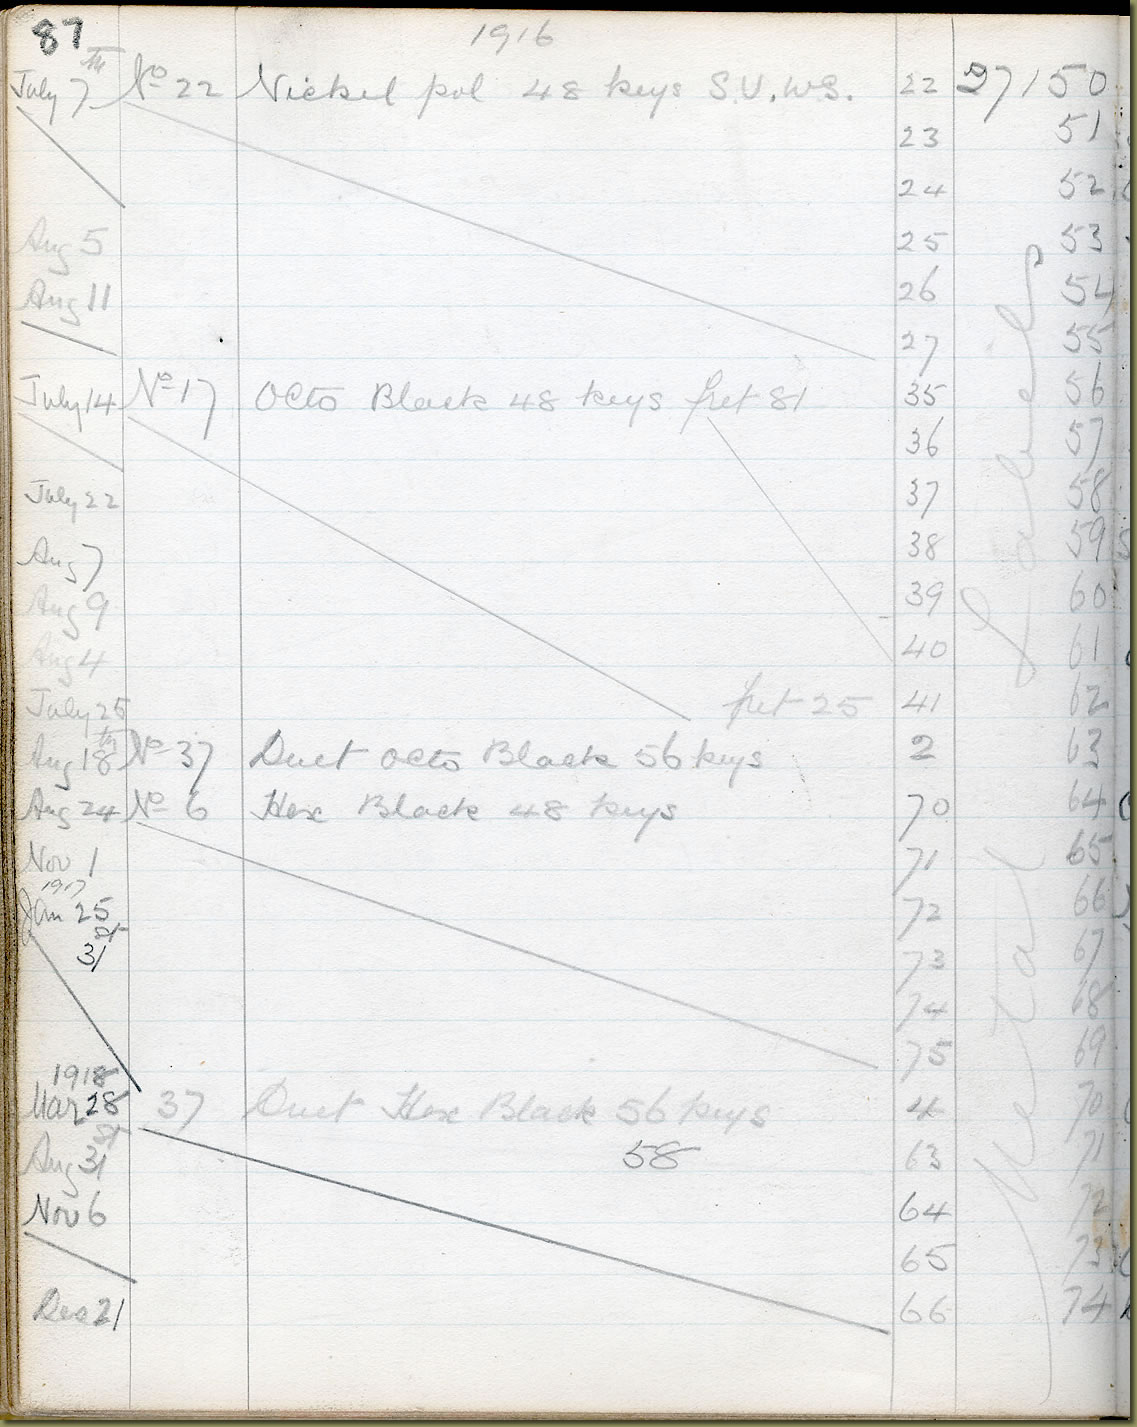 87 1916
July 7th No 22 Nickel pol 48 keys S.V.W.S. 22 27150
23 51
24 52
Aug 5 25 53
Aug 11 26 54
27 55
July 14 No 17 Octo Black 48 keys fret 81 35 56
36 57
July 22 37 58
Aug 7 38 59
Aug 9 39 60
Aug 4 40 61
July 25 fret 25 41 62
Aug 18th No 37 Duet Octo Black 56 keys 2 63
Aug 24 No 6 Hex Black 48 keys 70 64
Nov 1 71 65
1917
Jan 25 72 66
31st 73 67
74 68
75 69
1918
Mar 28 37 Duet Hex Black 56 keys 4 70
Aug 31st 58 63 71
Nov 6 64 72
65 73
Dec 21 66 74
Metal